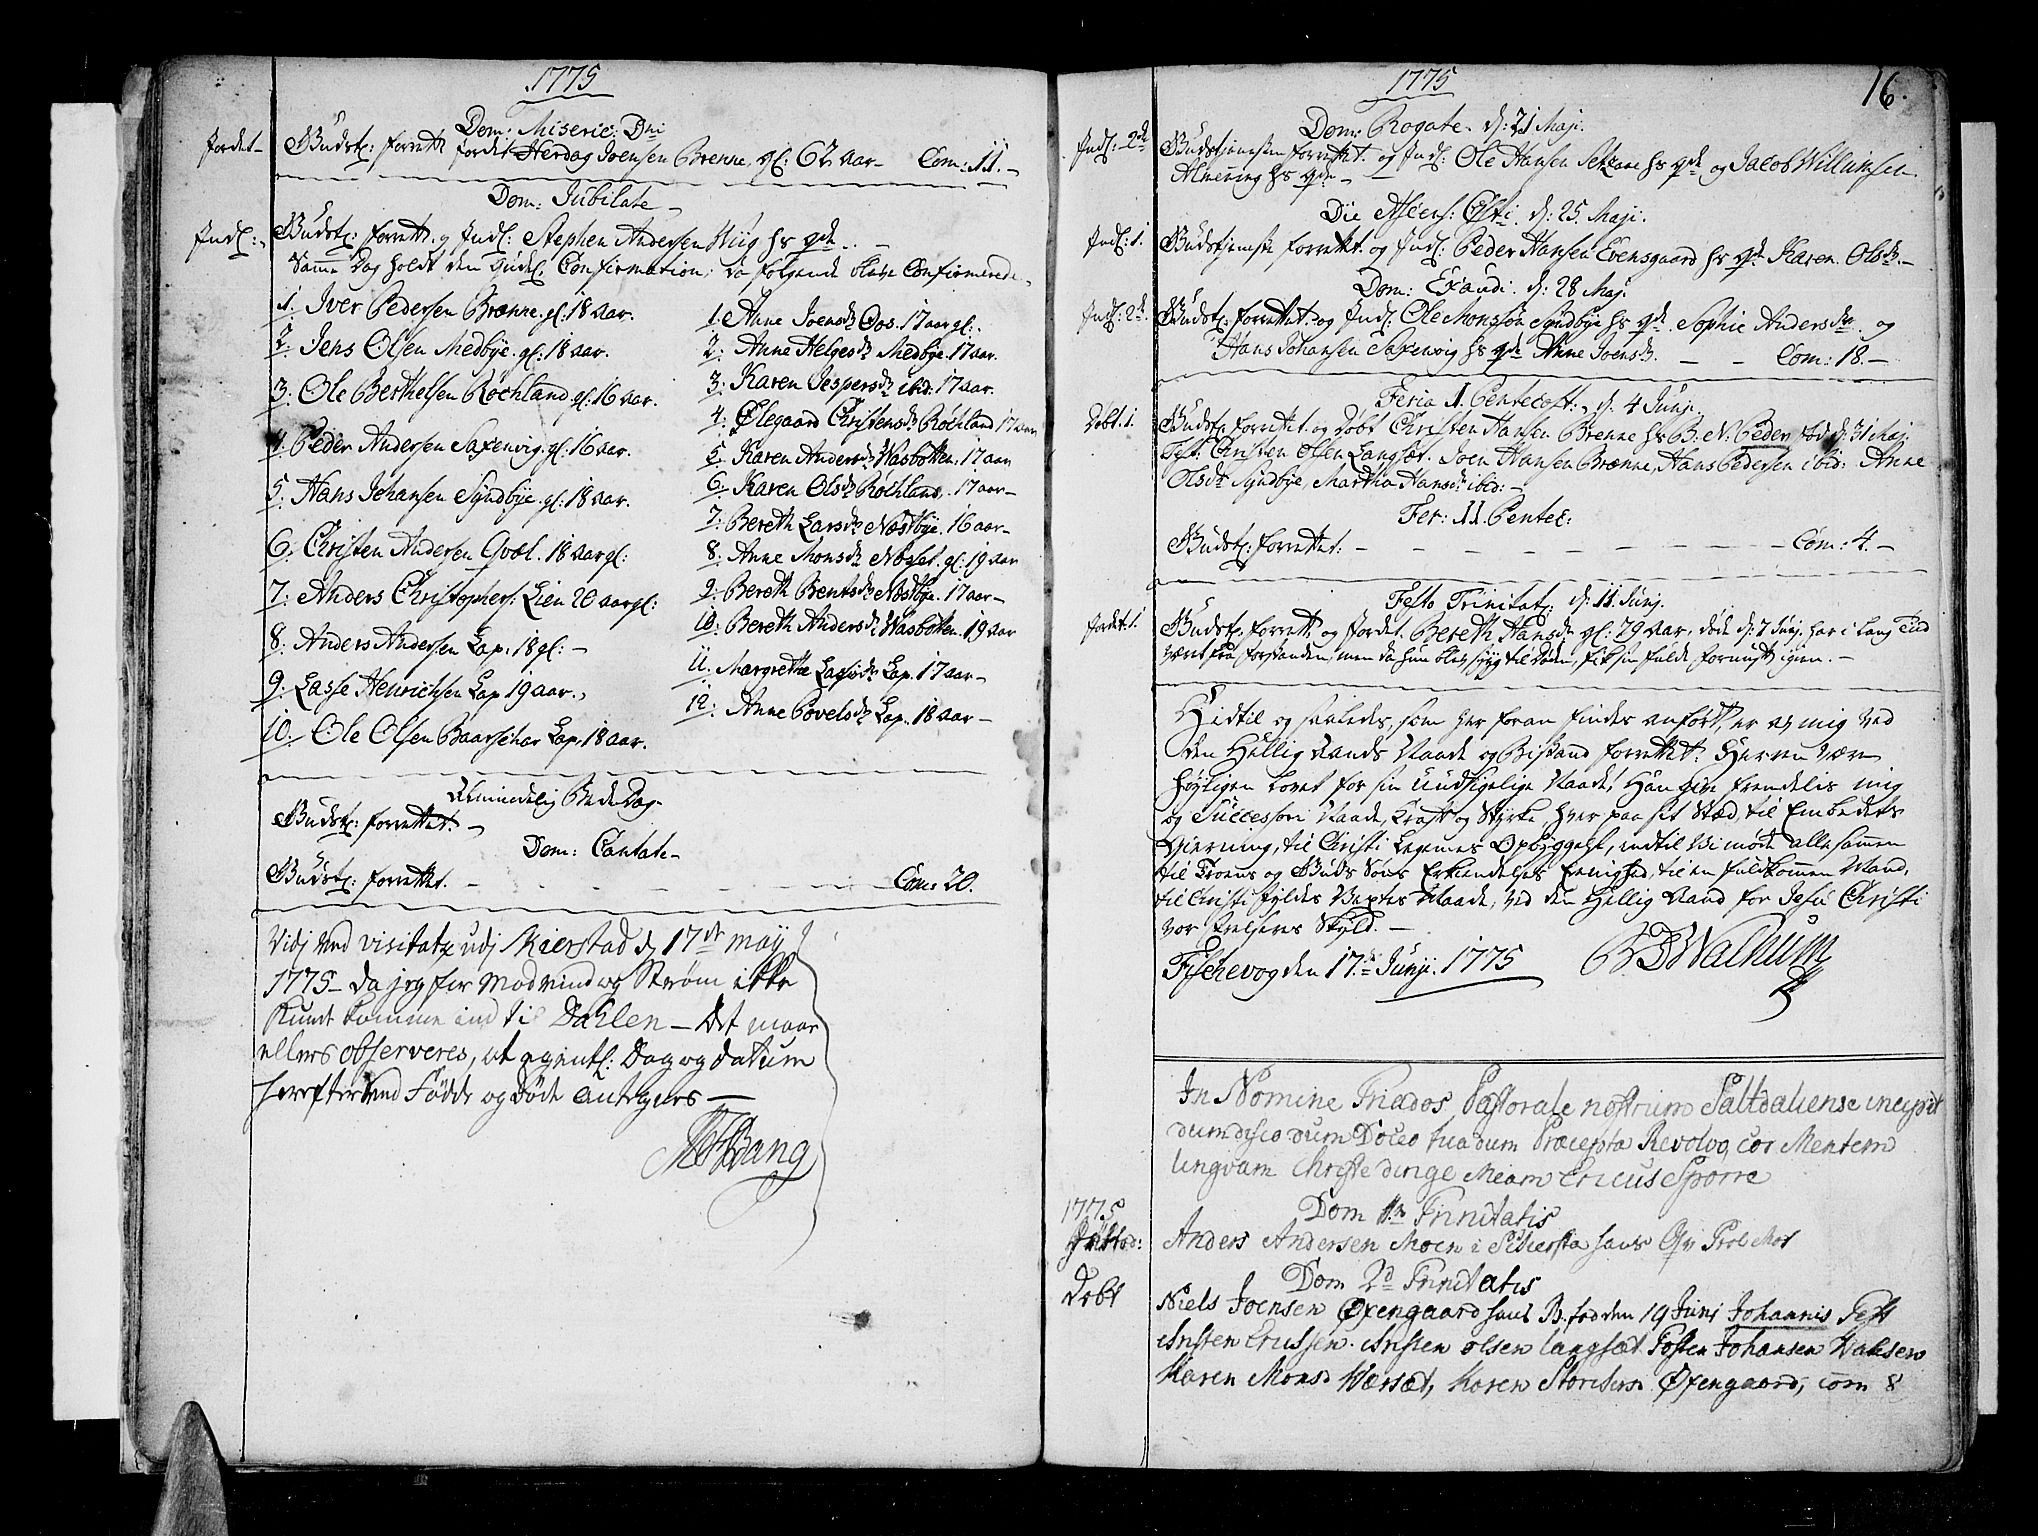 1775
Dom: Miseric: Dni
Jordet
Gudst: forrett. jordet Herdag Joensen Brenne gl: 62 aar Com: 11.
Dom: Jubilate
Indl:
Gudst: forrett. og Indl: Stephen Andersen Wiig hs qde
Samme Dag holdt den Confirmation, da folgende bleve Confirmerede
1. Iver Pedersen Brænne gl: 18 aar.
2. Jens Olsen Medbye gl: 18 aar.
3. Ole Berthelsen Røchland gl: 16 aar.
4. Peder Andersen Saxenvig gl: 16 aar.
5. Hans Johansen Sundbye gl: 18 aar.
6. Christen Andersen Qvæl. 18 aar gl:
7. Anders Christophers: Lien 20 aar gl:
8. Anders Andersen Lap. 18 gl:
9. Lasse Henrichsen Lap 19 aar.
10. Ole Olsen Baarschar Lap. 18 aar.
1. Anne Joensdr Oos. 17 aar gl:
2. Anne Helgesdr Medbye. 17 aar.
3. Karen Jespersdr ibid: 17 aar.
4. Ølegaard Christensdr Røchland 17 aar
5. Karen Andersdr Wasbotten. 17 aar
6. Karen Olsdr Røchland. 17 aar
7. Bereth Larsdr Næstbye. 16 aar
8. Anne Monsdr Næset. gl: 19 aar
9. Bereth Bentsdr Næstbye. 17 aar
10. Bereth Andersdr Wasbotten. 19 aar
11. Margrethe Lassesdr Lap. 17 aar
12. Anne Povelsdr Lap. 18 aar
Almindelig Bede Dag
Gudst: forrettet.
Dom: Cantate
Gudst: forrettet. Com: 20.
Vidj ved visitatz udj Skierstad d 17de may
1775 da jeg for Modvind og Strøm ikke
kunde komme ind til Dahlen — Det maae
ellers observeres, at egentl: Dag og datum
herefter ved Fødde og Døde antegnes —
Bang
1775
16.
Dom: Rogate. d: 21 Maji.
Indl: 2de
Gudstienesten forrettet. og Indl: Ole Hansen hs qde og Jacob Willumsen
Almening hs qde
Die Ascens: Christi. d: 25. Maji.
Indl: 1.
Gudstienste forrettet. og Indl: Peder Hansen Evensgaard hs qde Karen Olsdr.
Dom: Exaudi. d: 28 Maj.
Indl: 2de
Gudst: forrettet. og Indl: Ole Monsøn Sundbye hs qde Sophie Andersdr og
Hans Johansen Saxenvig hs qde Anne Joensdr. Com: 18.
Feria 1. Pentecost: d. 4 Junj
Døbt. 1.
Gudst: forrettet. og døbt Christen Hansen Brenne hs B. N. Peder fød d: 31 Maj:
Test: Christen Olsen Langsæt. Joen Hansen Brænne, Hans Pedersen ibid: Anne
Olsdr Sundbye, Martha Hansdr ibid:
Fer: 11. Pentec:
Gudst: forrettet: Com: 4.
Festo Trinitat: d: 11. Junj.
Jordet. 1.
Gudst: forrett. og Jordet. Bereth Hansdr gl: 79 aar, døde d: 7 Junj. har i lang Tiid
vært fra forstanden, men da hun blev syg til Døden, fik sin fulde fornuft igien.
Hidtil og saaledes, som her foran findes anført, er af mig ved
den Hellig Aands Naade og Bistand forrettet. Herren være
høyligen lovet for sin uudsigelige Naade! Han give fremdelis mig
og Successori Naade, Kraft og Styrke, hver paa sit Stæd, til Embedets
Gierning, til Christi Legemes Opbyggelse, indtil Vi møde alle sammen
til Troens og Guds Søns Erkiendelses Eenighed, til en fuldkommen Mand,
til Christi Fyldes Vaxtes Maade, ved den Hellig Aand for Jesu Christi
vor Frelseres Skyld.
Fischevog den 17. Junji. 1775 Walhum
In Nomine Triados Pastorale nostrum Saltdaliense incipit
dum disco dum Doceo tua dum Præcepta Revolvo, cor Mentem
linguam Christe dirige Meam Ericus Sporre
1775
Dom 1ma Trinitatis
Anders Andersen Moen i
Dom 2d Trinitatis
Døbt
Niels Joensen Øxengaard hans B. fød den 19 Juni Johannis Test
Christen Ericssen. Christen olsen langsæt. Tosten Johansen
Karen Monsd Værsæt, Karen Øxengaard, com 8